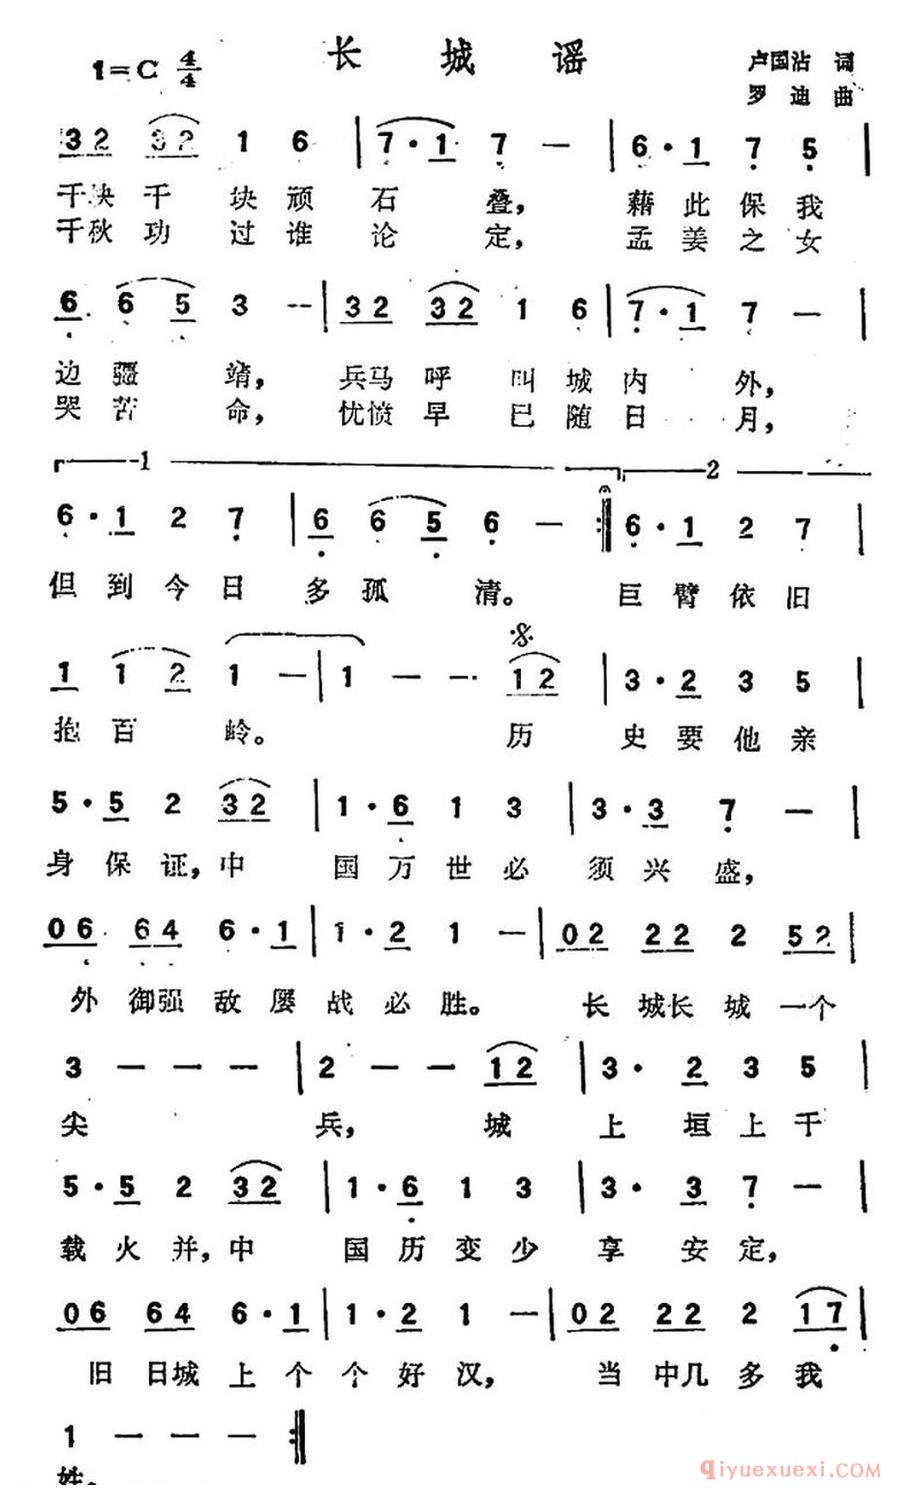 长城谣
1=C 4/4
卢国沾 词
罗迪 曲
32 32 1 6 | 7·1 7 — | 6·1 7 5 |
千块千块顽石叠，藉此保我
千秋功过谁论定，孟姜之女
6 6 5 3 -- | 32 32 1 6 | 7·1 7 — |
边疆靖，兵马呼叫城内外，
哭苦命，忧愤早已随日月，
1 2
6·1 2 7 | 6 6 5 6 — :‖ 6·1 2 7 |
但到今日多孤清。巨臂依旧
1 1 2 1 — | 1 — — 12 | 3·2 3 5 |
抱百岭。历史要他亲
5·5 2 32 | 1·6 1 3 | 3·3 7 — |
身保证，中国万世必须兴盛，
06 64 6·1 | 1·2 1 — | 02 22 2 52 |
外御强敌屡战必胜。长城长城一个
3 — — — | 2 — — 12 | 3· 2 3 5 |
尖兵，城上垣上千
5·5 2 32 | 1·6 1 3 | 3· 3 7 — |
载火并，中国历变少享安定，
06 64 6·1 | 1·2 1 — | 02 22 2 17 |
旧日城上个个好汉，当中几多我
1 — — — :‖
姓。
qiyuexuexi.com